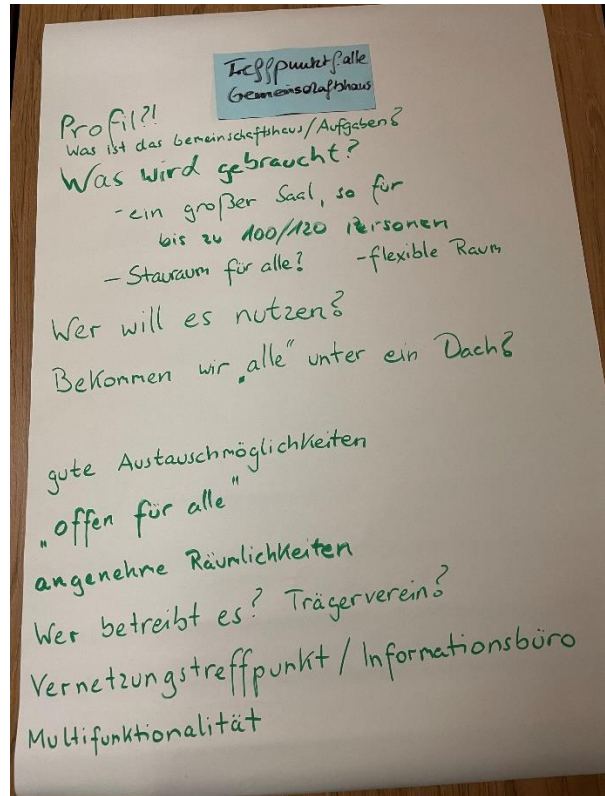 Treffpunkt f. alle
Gemeinschaftshaus
Profil?!
Was ist das Gemeinschaftshaus/Aufgaben?
Was wird gebraucht?
- ein großer Saal, so für
bis zu 100/120 Personen
- Stauraum für alle? - flexible Raum
Wer will es nutzen?
Bekommen wir „alle" unter ein Dach?
gute Austauschmöglichkeiten
„offen für alle"
angenehme Räumlichkeiten
Wer betreibt es? Trägerverein?
Vernetzungstreffpunkt / Informationsbüro
Multifunktionalität